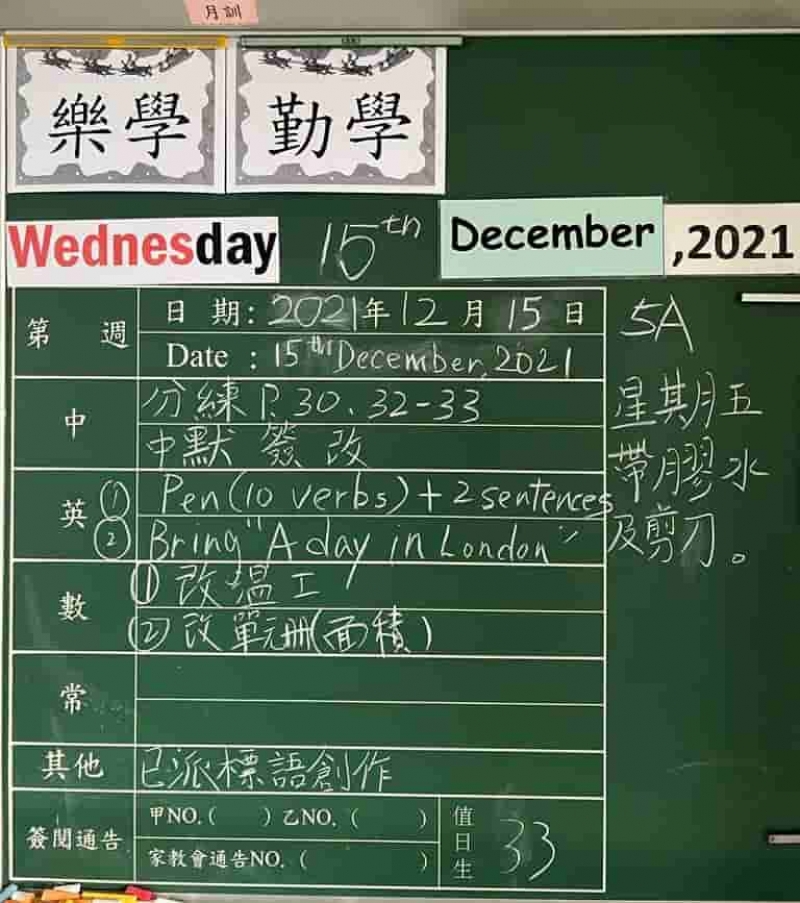 月訓
樂學 勤學
Wednesday 15th December ,2021
第 週 日 期: 2021年12月15日
Date : 15th December, 2021
中 分練 P.30、32-33
中默 簽 改
英 ① Pen(10 verbs)+2 sentences
② Bring "A day in London"
數 ① 改堝工
② 改單元冊(面積)
常
其他 已派標語創作
簽閱通告 甲NO.( ) 乙NO. ( )
家教會通告NO. ( )
值日生 33
5A
星期五
帶膠水
及剪刀。